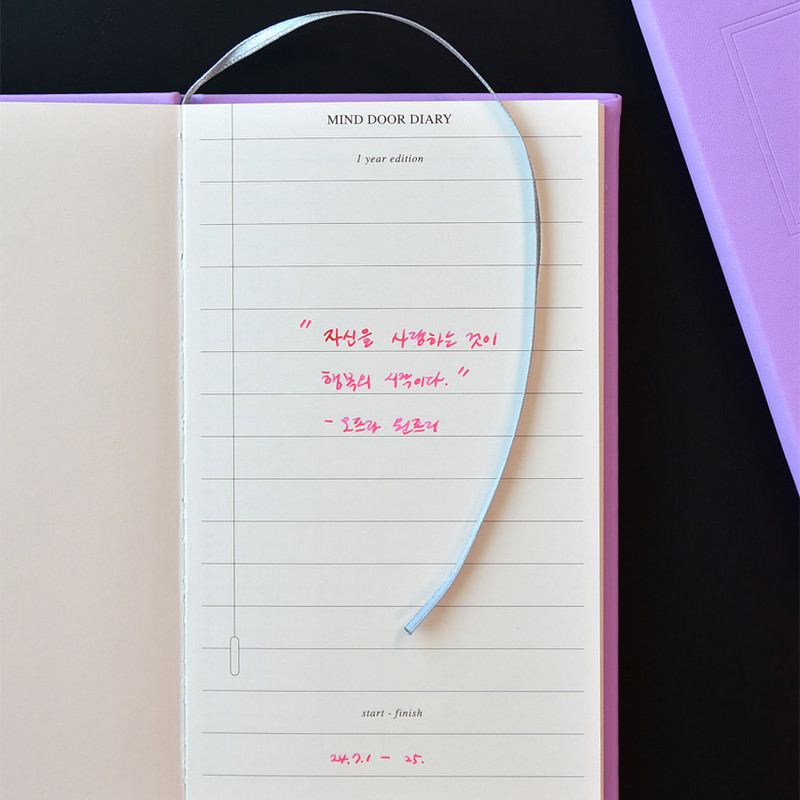 MIND DOOR DIARY
1 year edition
" 자신을 사랑하는 것이
행복의 시작이다. "
- 오프라 윈프리
start - finish
24.7.1 - 25.